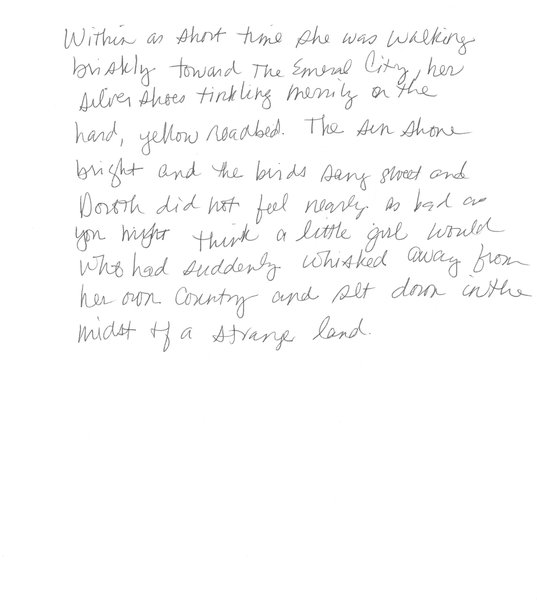 Within as short time she was walking
briskly toward The Emeral City, her
silver shoes tinkling merrily on the
hard, yellow roadbed. The sun shone
bright and the birds sang sweet and
Doroth did not feel nearly as bad as
you might think a little girl would
who had suddenly whisked away from
her own Country and set down in the
midst of a strange land.